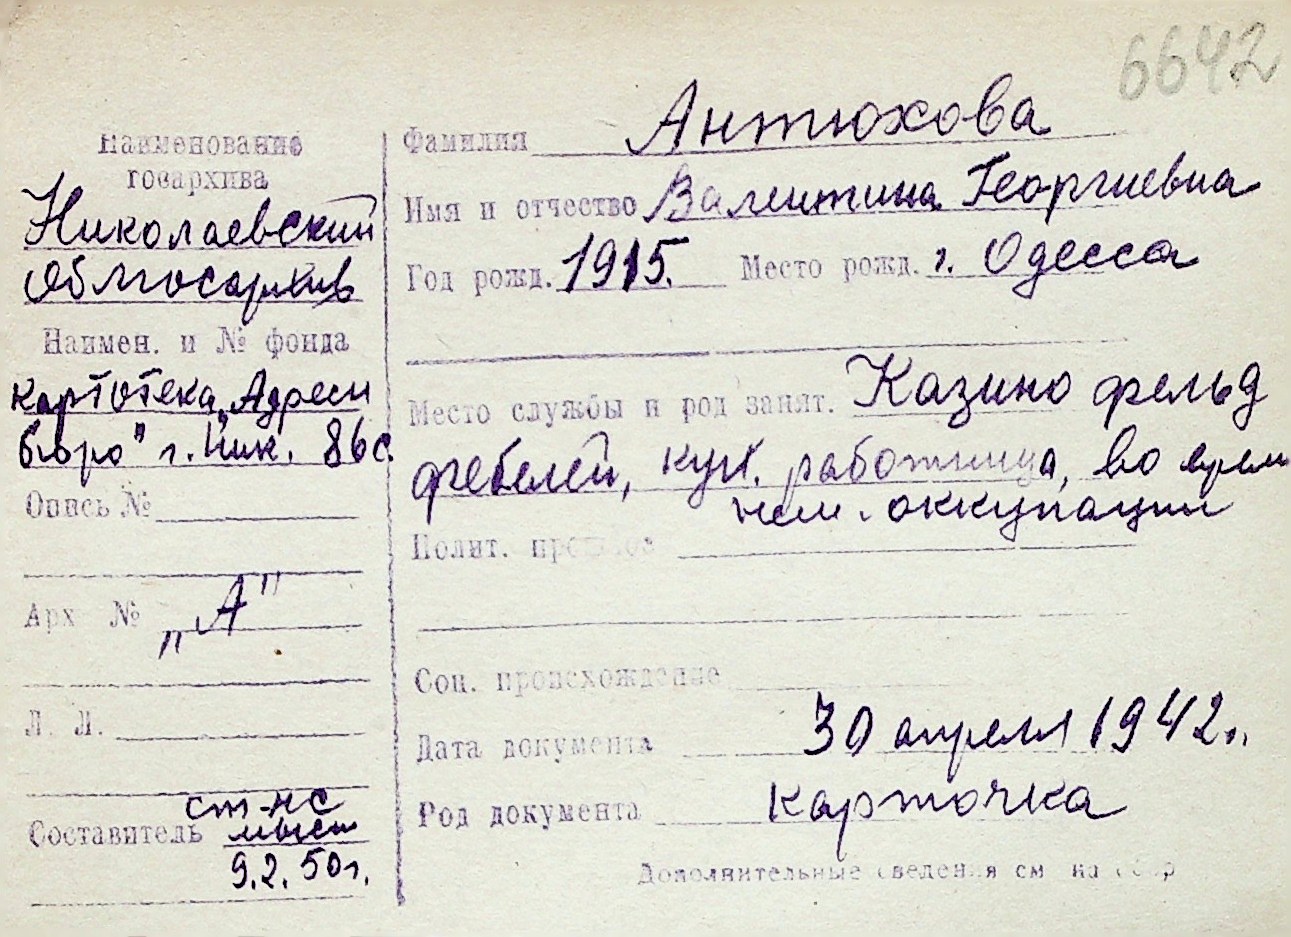 6642
Наименование
госархива
Николаевский
Облгосархив
Наимен. и № фонда
картотека "Адресн
бюро" г. Ник. 86с.
Опись №
Арх №
"А"
Л. Л.
ст-нс
Составитель
9.2.50г.
Фамилия Антюхова
Имя и отчество Валентина Георгиевна
Год рожд. 1915. Место рожд. г. Одесса
Место службы и род занят. Казино фельд
фебелей, кух. работница, во врем
нем. оккупации
Полит.
Соц. происхождение
Дата документа 30 апреля 1942г.
Род документа карточка
Дополнительные сведения см на